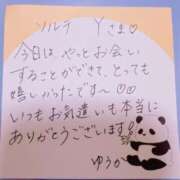 ソルテ Yさま♡
今日は やっとお会い
することができて、とっても
嬉しかったです〜
いつもお気遣いも本当に
ありがとうございます!!
ゆうか